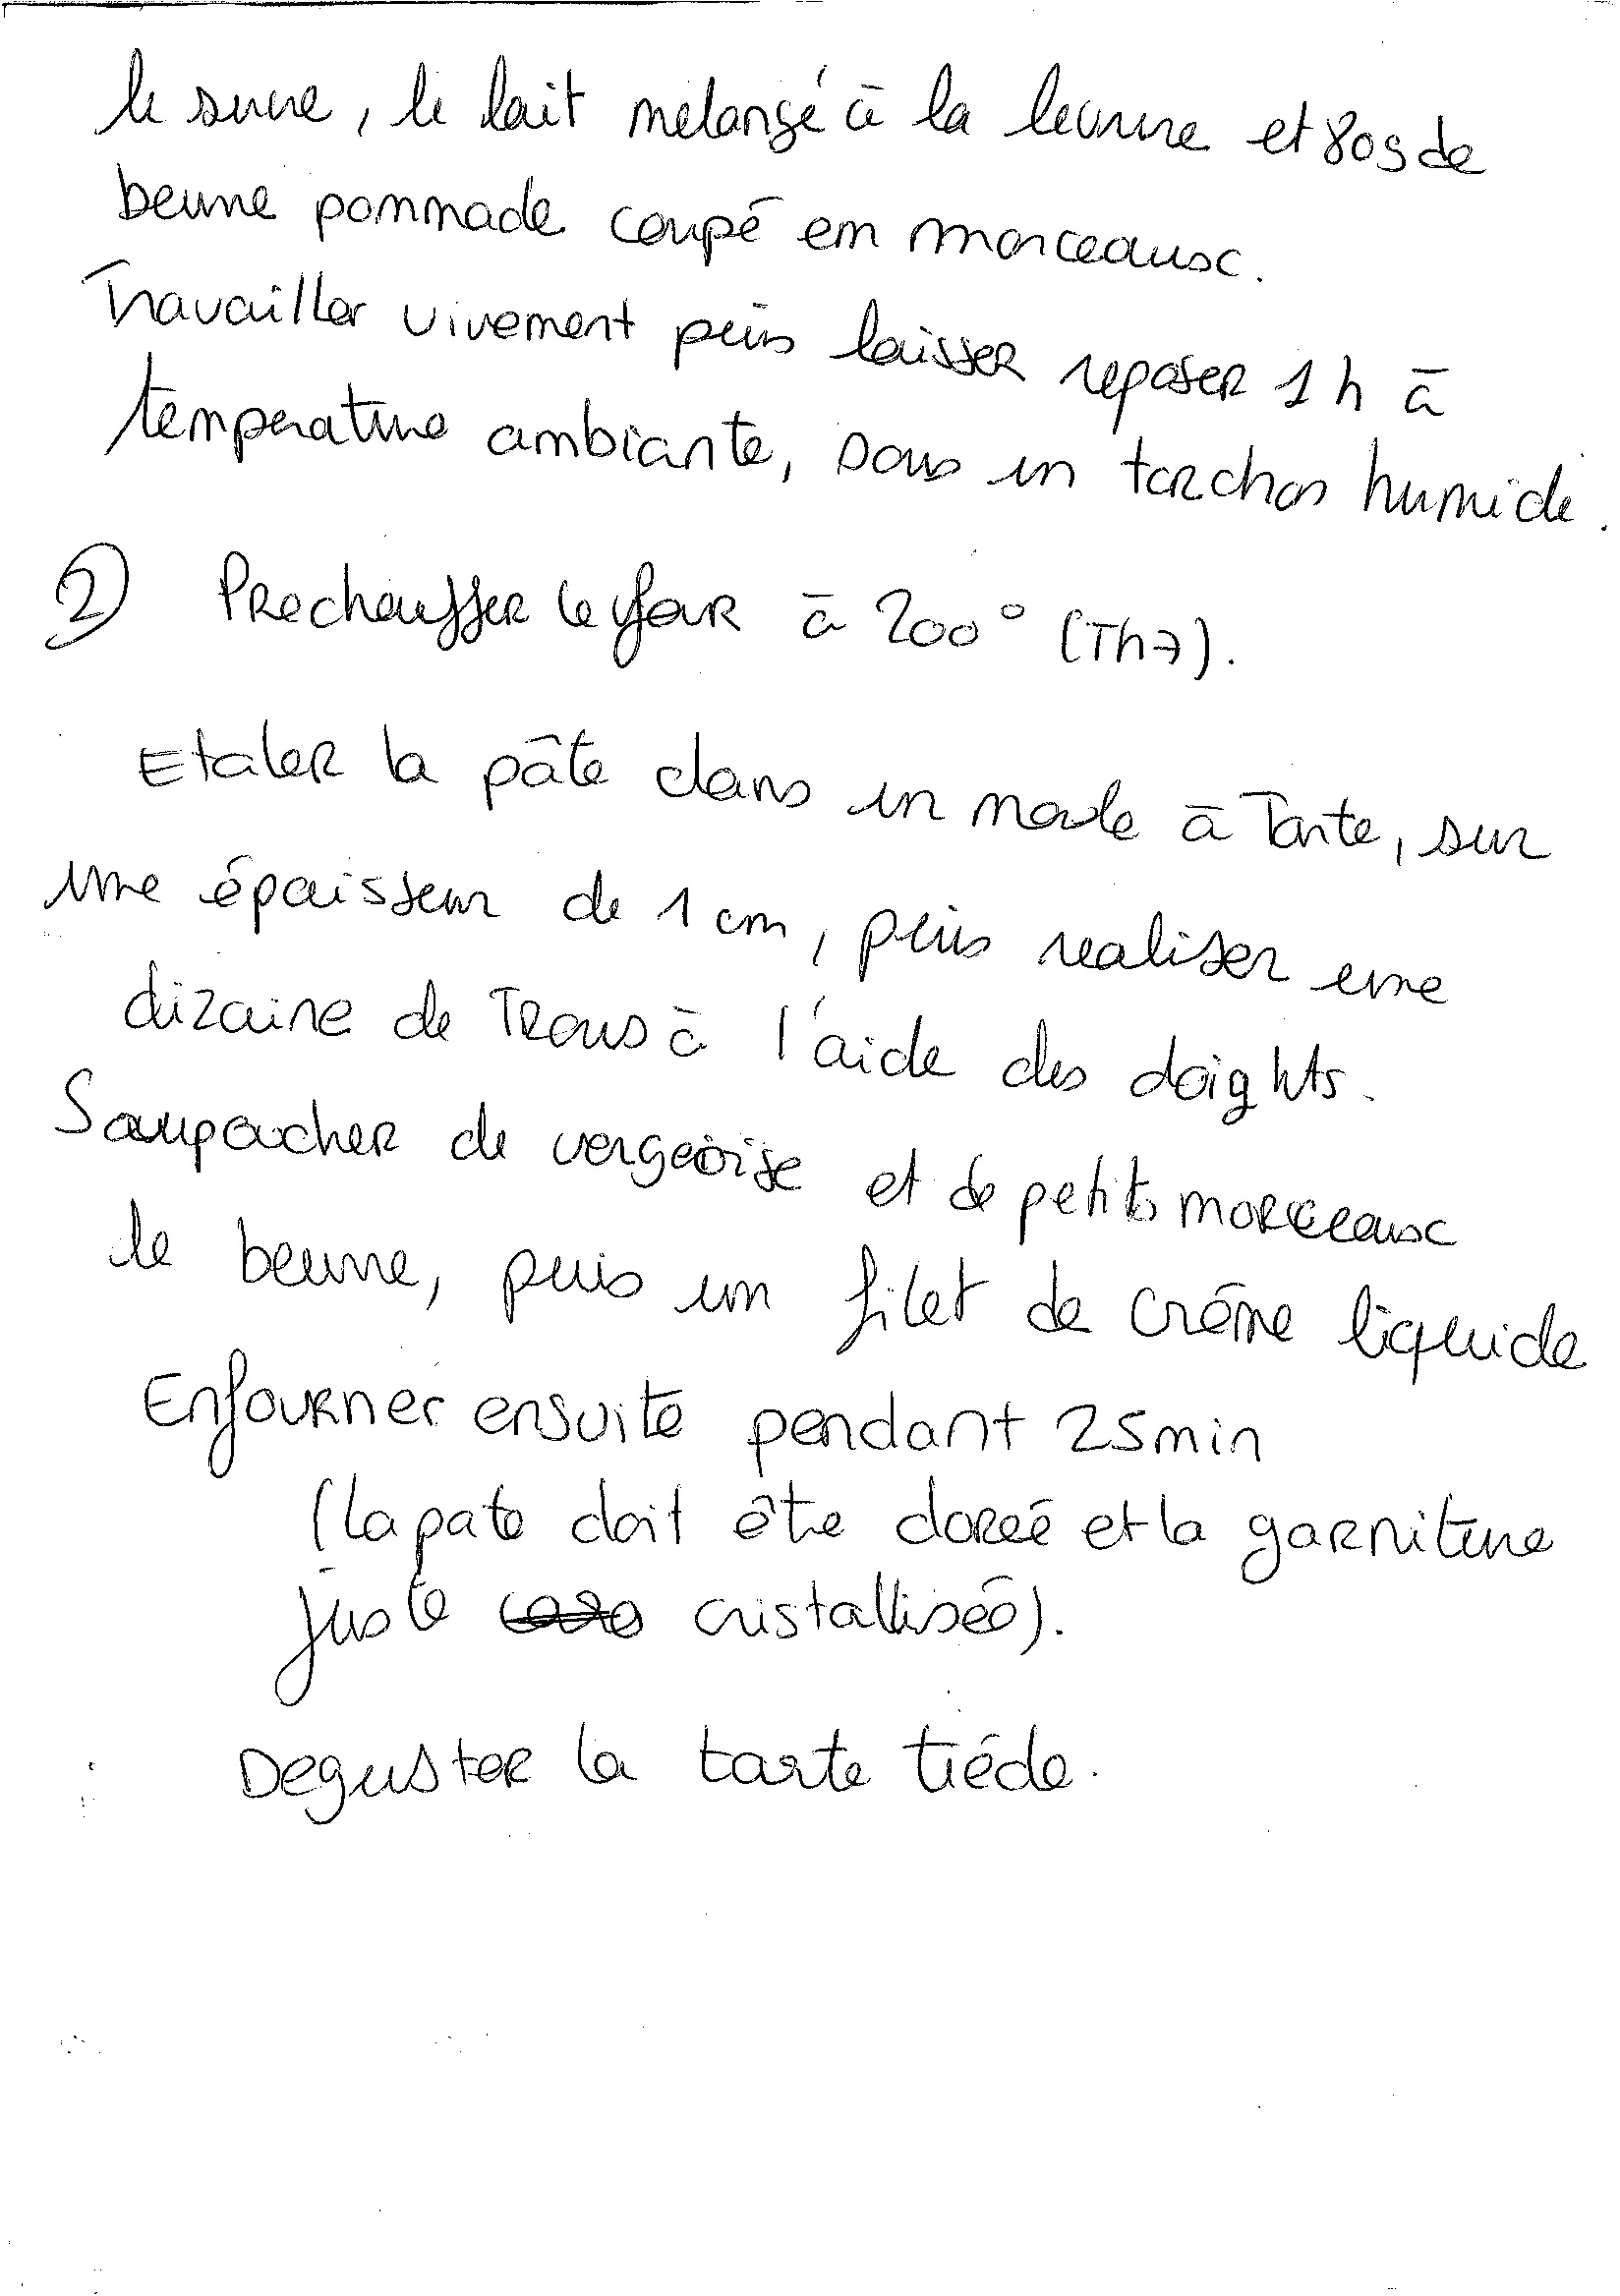 le sucre, le lait mélangé à la levure et 80g de
beurre pommade coupé en morceaux.
Travailler vivement puis laisser reposer 1h à
temperature ambiante, sous un torchon humide.
2) Prechauffer le four à 200° (Th7).
Etaler la pâte dans un moule à Tarte, sur
une épaisseur de 1 cm, puis realiser une
dizaine de Trous à l'aide des doights.
Saupoudrer de vergeoise et de petits morceaux
de beurre, puis un filet de crème liquide
Enfourner ensuite pendant 25min
(la pate doit être dorée et la garniture
juste cristallisée).
Deguster la tarte tiède.